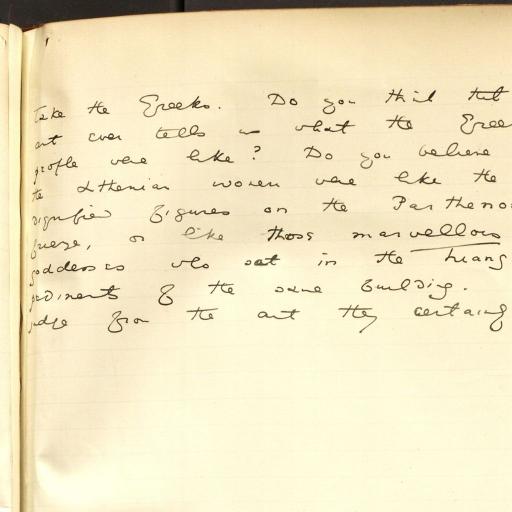 Take the Greeks. Do you think that
art ever tells us what the Greek
people were like? Do you believe
the Athenian women were like the
dignified figures on the Parthenon
frieze, or like those marvellous
goddesses who sat in the triang
pediments of the same building.
judge from the art they certainly